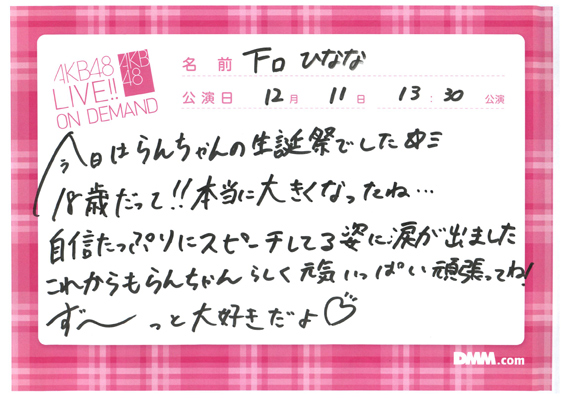 AKB48
LIVE!!
ON DEMAND
AKB
48
名前 下口ひなな
公演日 12月 11日 13:30 公演
今日はらんちゃんの生誕祭でした
18歳だって!!本当に大きくなったね…
自信たっぷりにスピーチしてる姿に涙が出ました
これからもらんちゃんらしく元気いっぱい頑張ってね!
ず〜っと大好きだよ♡
DMM.com